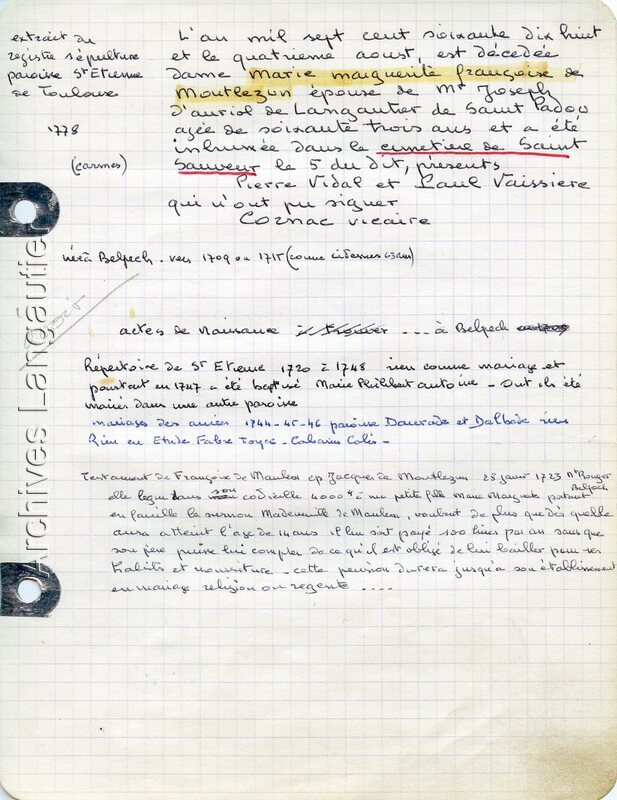 extrait du
registre sépulture
paroisse St Etienne
de Toulouse
1778
(carmes)
L'an mil sept cent soixante dix huit
et le quatrieme aoust, est décedée
dame Marie marguerite françoise de
Montlezun épouse de Mr Joseph
D'auriol de Langautier de Saint Padou
agée de soixante trois ans et a été
inhumée dans le cimetiere de Saint
Sauveur le 5 du dit, présents
Pierre Vidal et Paul Vaissiere
qui n'ont pu signer
Coznac vicaire
née à Belpech. vers 1709 ou 1715 (comme ci dessus 63 ans)
actes de Naissance à trouver ... à Belpech
Répertoire de St Etienne 1720 à 1748 rien comme mariage et
pourtant en 1747 a été baptisé Marie Philibert antoine - Ont ils été
mariés dans une autre paroisse
mariages des années 1744-45-46 paroisse Daurade et Dalbade rien
Rien en Etude Fabre
Testament de Françoise de Mauleon ep Jacques de Montlezun 23 janvier 1723 Belpech
elle legue dans son codicille 4000 à sa petite fille Marie Marguerite portant
en famille le surnom Mademoiselle de Mauleon, voulant de plus que dès qu'elle
aura atteint l'age de 14 ans il lui soit payé 100 livres par an sans que
son père puisse lui compter de ce qu'il est obligé de lui bailler pour ses
habits et nourriture - cette pension durera jusqu'a son établissement
en mariage religion ou regente ....
Archives Langautier